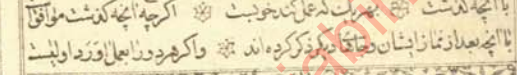 با آنچه گذشت ❊ بهر یک که عمل کند خوبست ❊ اگرچه آنچه گذشت موافق
با آنچه بعد از نماز ایشان و جاهای دیگر ذکر کرده اند ❊ و اگر هر دو را بعمل آورد اولیست